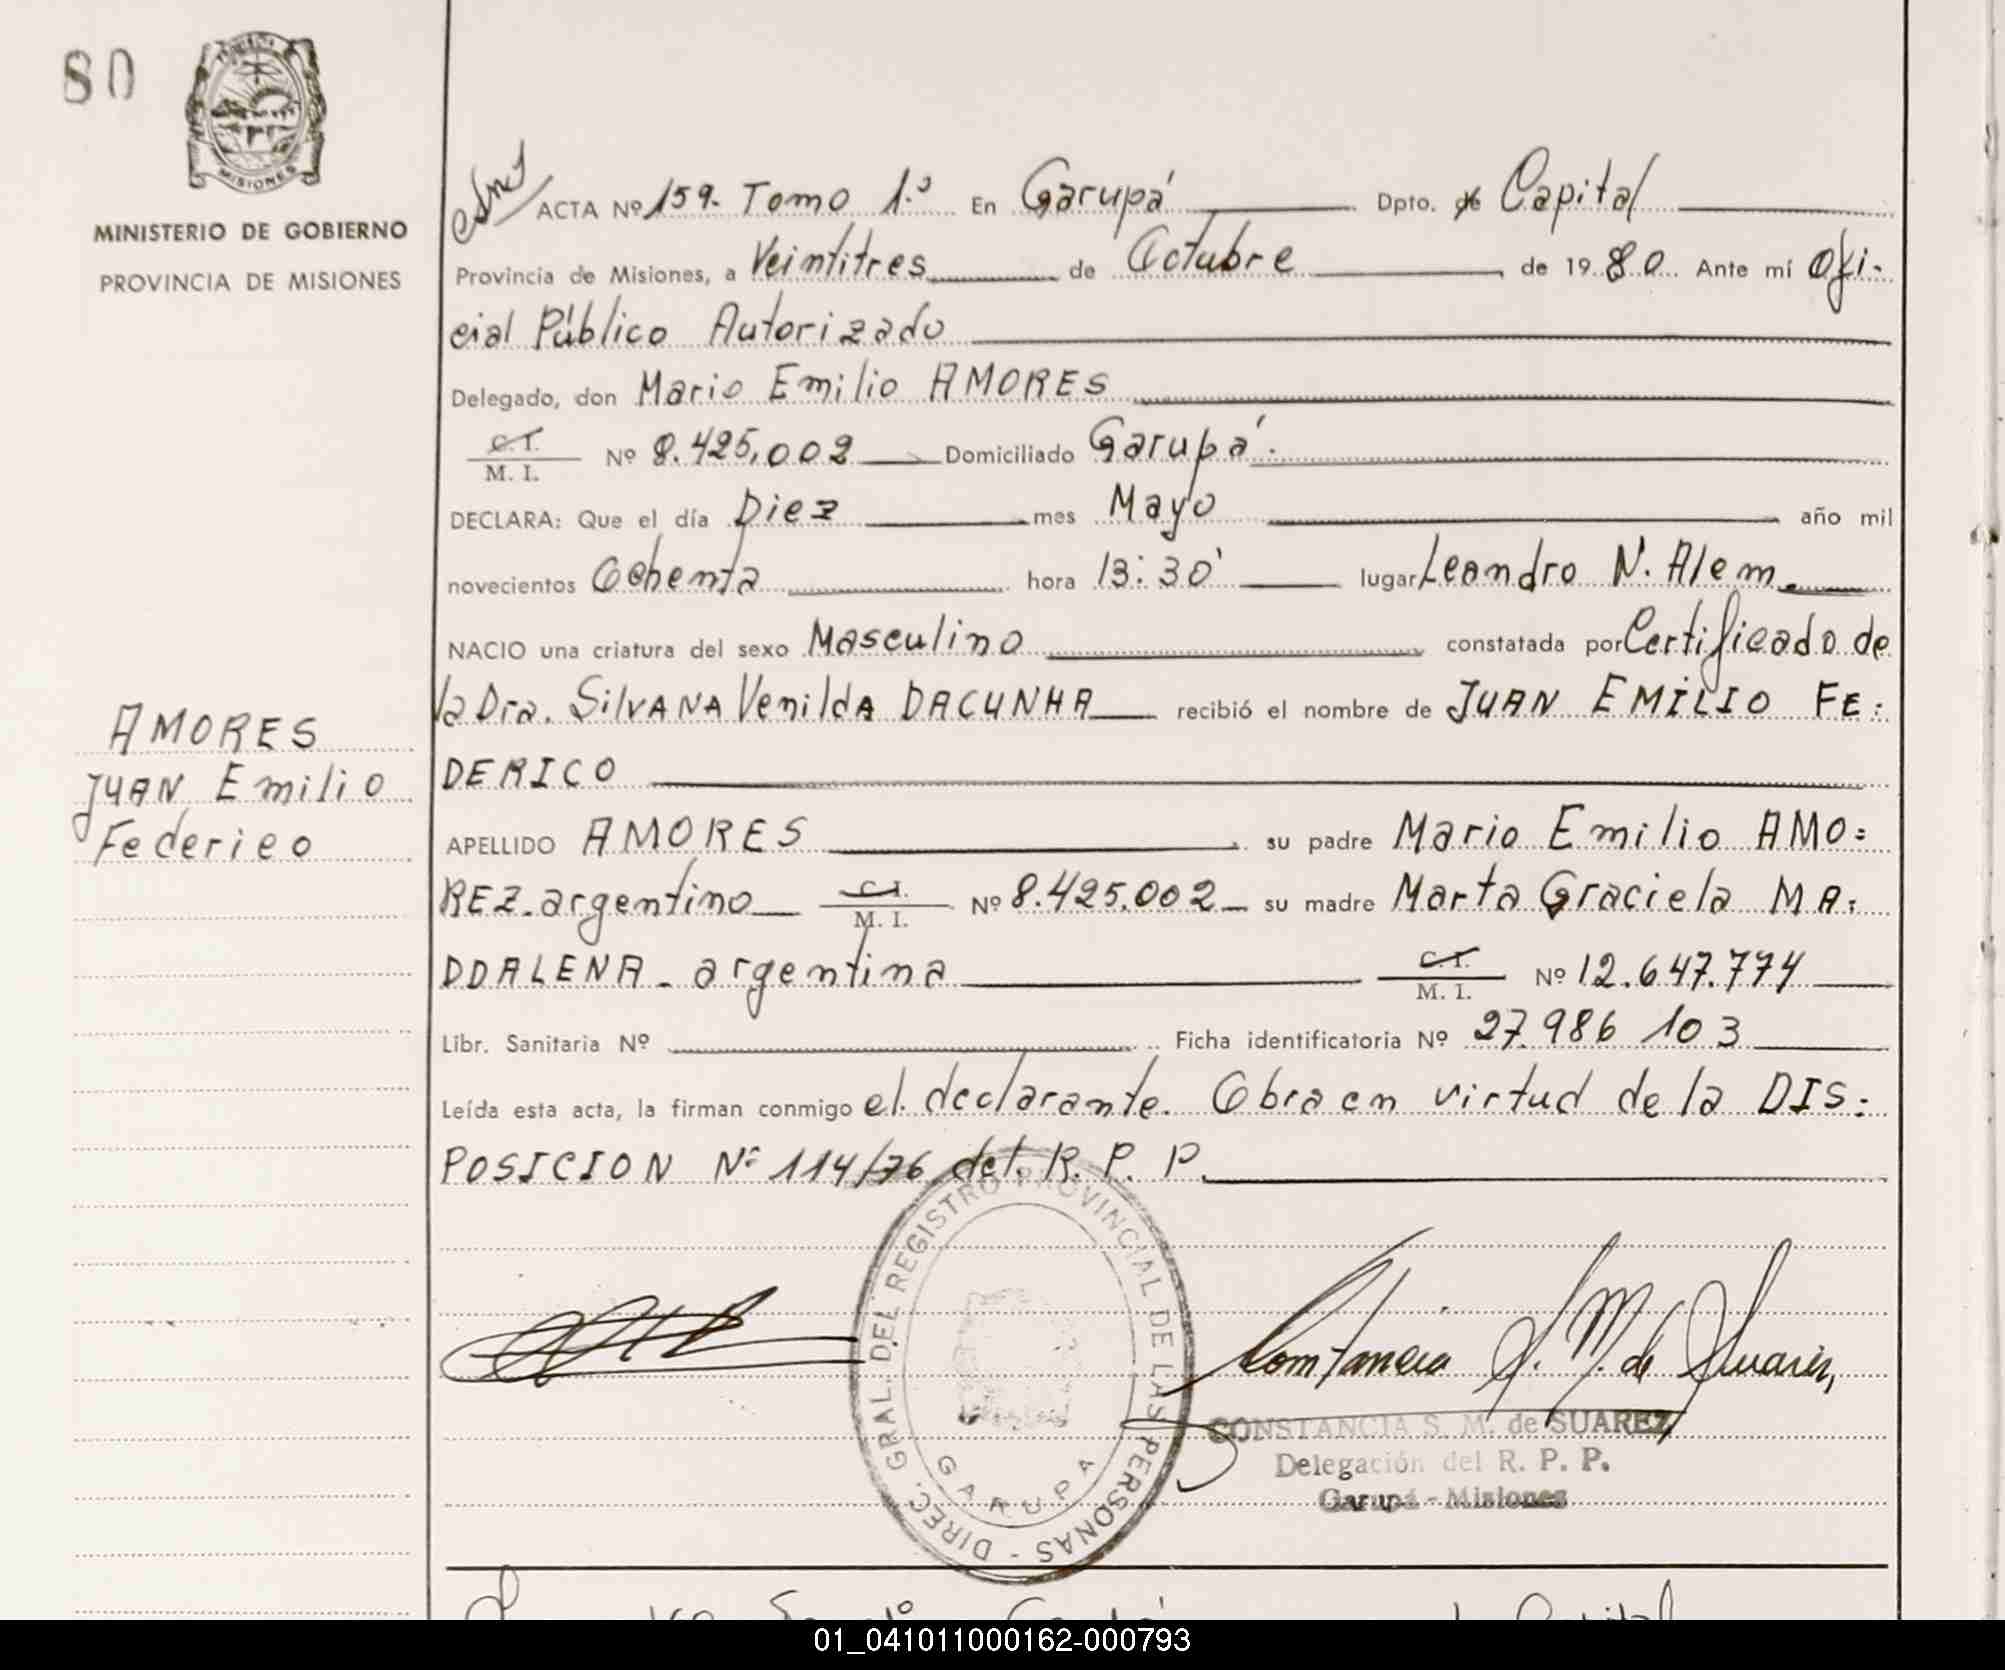 80
MISIONES
MINISTERIO DE GOBIERNO
PROVINCIA DE MISIONES
ACTA Nº 159. Tomo 1.º En Garupá Dpto. de Capital
Provincia de Misiones, a Veintitres de Octubre de 1980. Ante mí Ofi-
cial Público Autorizado
Delegado, don Mario Emilio AMORES
C. I.
M. I.
Nº 8.425.002 Domiciliado Garupá.
DECLARA: Que el día Diez mes Mayo año mil
novecientos Ochenta hora 13:30' lugar Leandro N. Alem.
NACIO una criatura del sexo Masculino constatada por Certificado de
la Dra. SilVANA VenildA DACUNHA recibió el nombre de JUAN EMILIO FE=
DERICO
AMORES
JUAN Emilio
Federico
APELLIDO AMORES su padre Mario Emilio AMO=
REZ. argentino C. I.
M. I.
Nº 8.425.002 su madre Marta Graciela MA=
DDALENA - argentina C. I.
M. I.
Nº 12.647.774
Libr. Sanitaria Nº Ficha identificatoria Nº 27.986 103
Leída esta acta, la firman conmigo el declarante. Obra en virtud de la DIS=
POSICION Nº 114/76 del R. P. P.
DIREC. GRAL. DEL REGISTRO PROVINCIAL DE LAS PERSONAS -
GARUPA
Constancia S. M. de Suarez
CONSTANCIA S. M. de SUAREZ
Delegación del R. P. P.
Garupá - Misiones
01_041011000162-000793